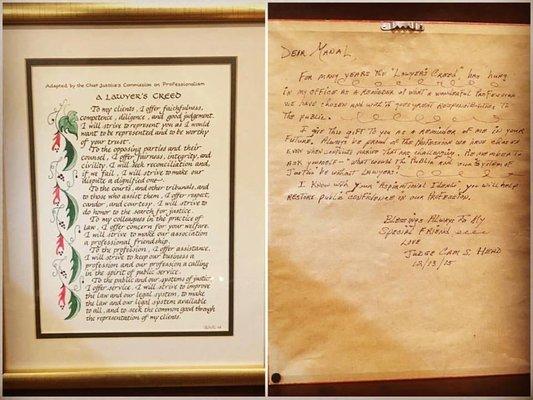 Adapted by the Chief Justice's Commission on Professionalism
A LAWYER'S CREED
To my clients, I offer faithfulness,
competence, diligence, and good judgement.
I will strive to represent you as I would
want to be represented and to be worthy
of your trust.
To the opposing parties and their
counsel, I offer fairness, integrity, and
civility. I will seek reconciliation and,
if we fail, I will strive to make our
dispute a dignified one.
To the courts, and other tribunals, and
to those who assist them, I offer respect,
candor, and courtesy. I will strive to
do honor to the search for justice.
To my colleagues in the practice of
law, I offer concern for your welfare.
I will strive to make our association
a professional friendship.
To the profession, I offer assistance.
I will strive to keep our business a
profession and our profession a calling
in the spirit of public service.
To the public and our systems of justice,
I offer service. I will strive to improve
the law and our legal system, to make
the law and our legal system available
to all, and to seek the common good through
the representation of my clients.
Dear Manal,
For many years the "Lawyer's Creed" has hung
in my office as a reminder of what a wonderful profession
we have chosen and with it goes great responsibilities to
the public.
I give this gift to you as a reminder of me in your
future. Always be proud of the profession we have chosen
even when confronted with challenging. Remember to
ask yourself - "what would the public and our system of
Justice be without lawyers?"
I know with your "Aspirational Ideals" you will help
restore public confidence in our profession.
Blessings Always To My
Special Friend
Love
Judge Cam S. Head
12/13/15